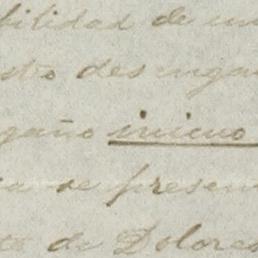 bilidad de un
sto desenga
gaño inicuo
ca se presen
to de Dolores